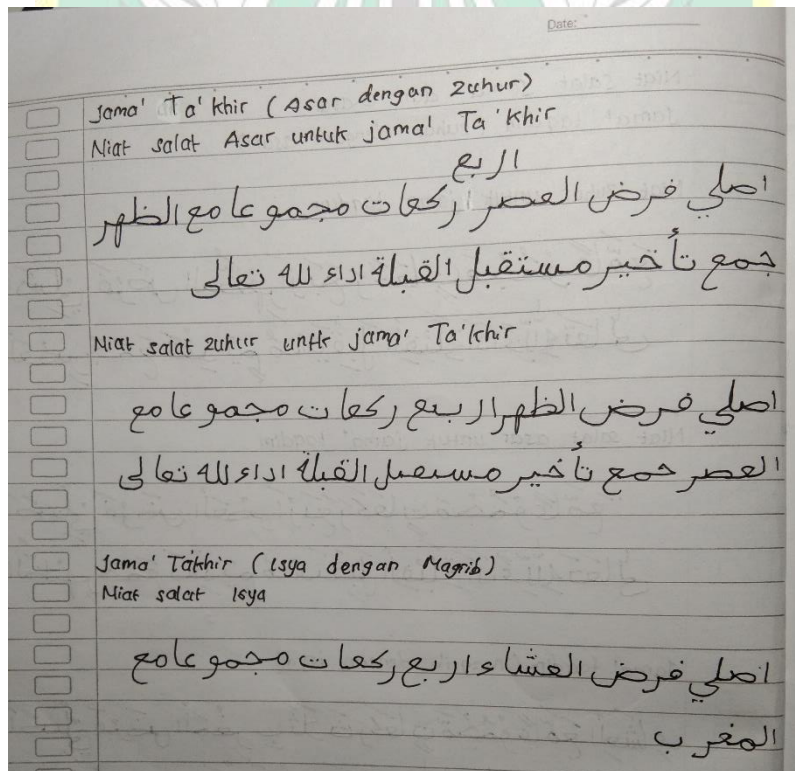 Date:
Jama' Ta'khir (Asar dengan Zuhur)
Niat salat Asar untuk jama' Ta'khir
اربع
اصلي فرض العصر ا ركعات مجموعا مع الظهر
جمع تأخير مستقبل القبلة اداء لله تعالى
Niat salat zuhur untk jama' Ta'khir
اصلي فرض الظهر اربع ركعات مجموعا مع
العصر جمع تأخير مستقبل القبلة اداء لله تعالى
Jama' Takhir (Isya dengan Magrib)
Niat salat Isya
اصلي فرض العشاء اربع ركعات مجموعا مع
المغرب